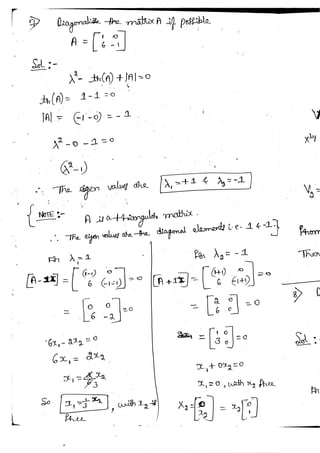 7) Diagonalize the matrix A if possible.
A = [1 0
6 -1]
Sol :-
λ² - tr(A) + |A| = 0
tr(A) = 1-1 = 0
|A| = (-1-0) = -1
λ² - 0 - 1 = 0
(λ²-1)
∴ The eigen values are λ₁ = +1 & λ₂ = -1
NOTE :- A is a triangular matrix.
∴ The eigen values are the diagonal elements i.e. 1 & -1.
For λ = 1
[A-1I] = [(1-1) 0
6 (-1-1)] = 0
= [0 0
6 -2] = 0
6x₁ - 2x₂ = 0
6x₁ = 2x₂
So x₁ = 1/3 x₂, with x₂
free.
For λ₂ = -1
[A+1I] = [(1+1) 0
6 (-1+1)] = 0
= [2 0
6 0] = 0
= [1 0
3 0] = 0
x₁ + 0x₂ = 0
x₁ = 0, with x₂ free.
X₂ = [0
x₂] = x₂ [0
1]
V₂ =
From
Then
8)
Sol :